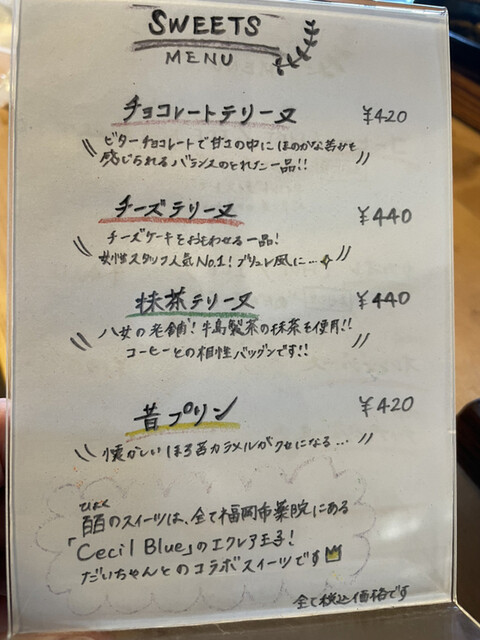 SWEETS
MENU
チョコレートテリーヌ ¥420
ビターチョコレートで甘さの中にほのかな苦みも
感じられるバランスのとれた一品!!
チーズテリーヌ ¥440
チーズケーキをおもわせる一品!
女性スタッフ人気No.1!ブリュレ風に…
抹茶テリーヌ ¥440
八女の老舗!牛島製茶の抹茶を使用!!
コーヒーとの相性バツグンです!!
昔プリン ¥420
懐かしいほろ苦カラメルがクセになる…
ひゃく
百のスイーツは、全て福岡市薬院にある
「Cecil Blue」のエクレア王子!
だいちゃんとのコラボスイーツです
全て税込価格です